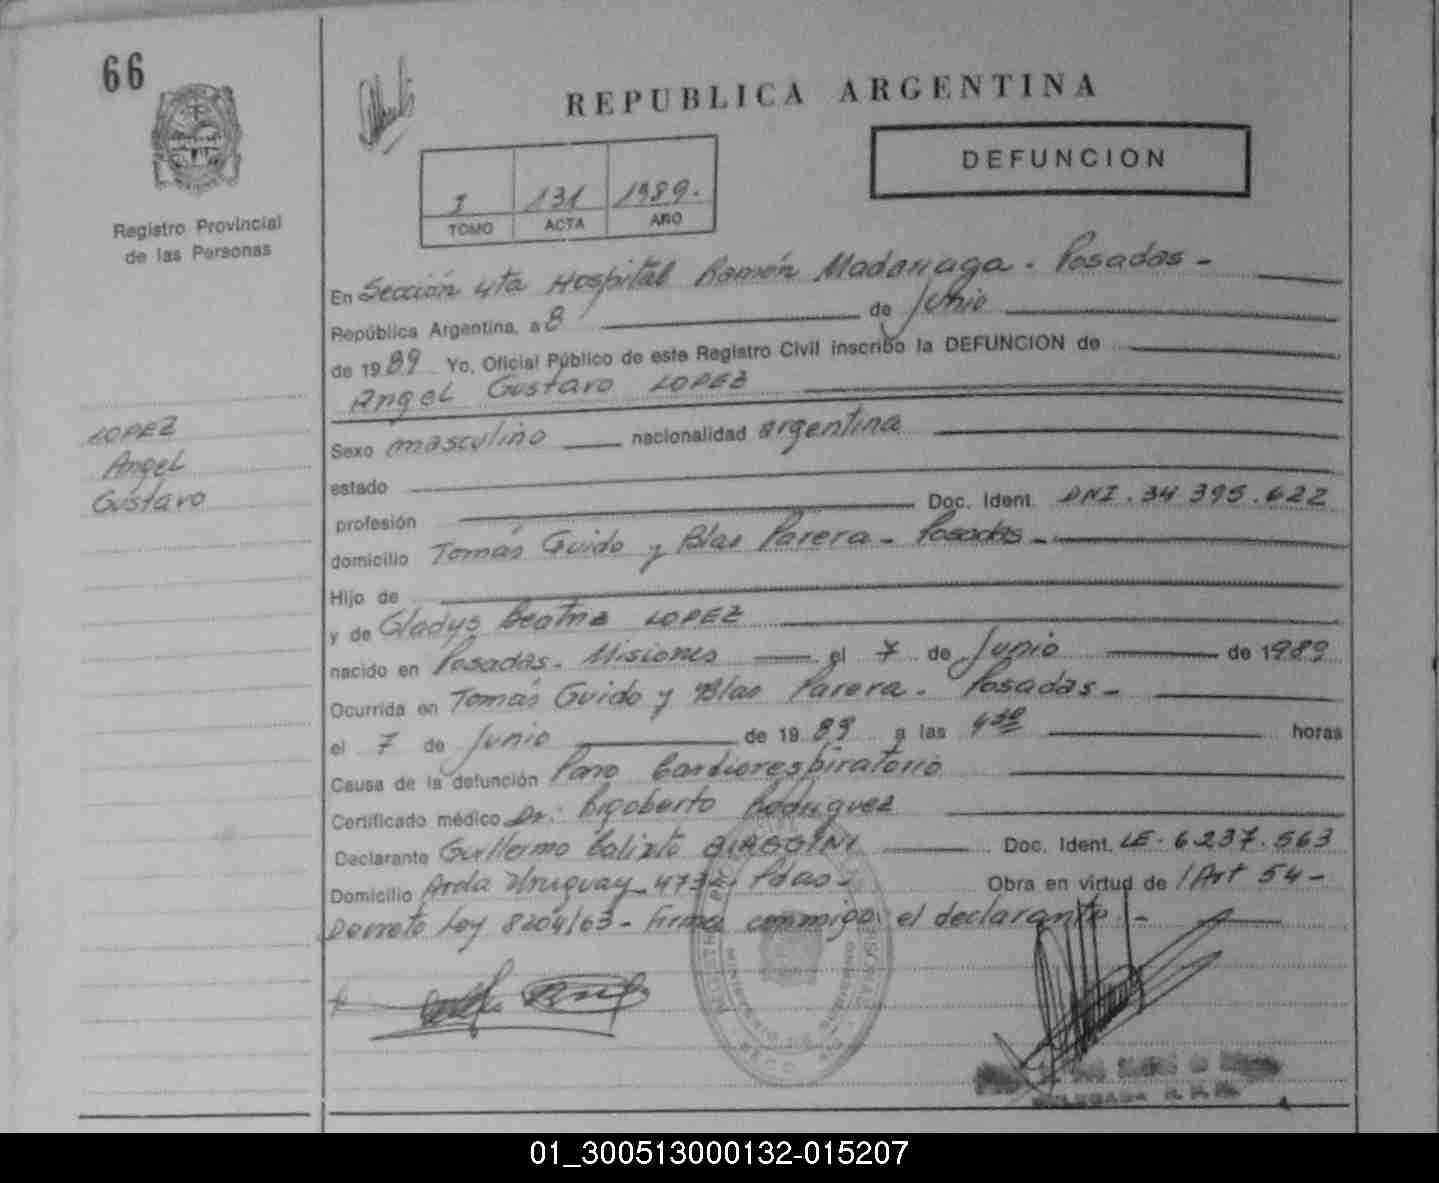 66
REPUBLICA ARGENTINA
DEFUNCION
I 131 1989.
TOMO ACTA AÑO
Registro Provincial
de las Personas
En Sección 4ta Hospital Ramón Madariaga. Posadas -
República Argentina, a 8 de Junio
de 1989 Yo, Oficial Público de este Registro Civil inscribo la DEFUNCION de
Angel Gustavo LOPEZ
LOPEZ
Angel
Gustavo
Sexo masculino nacionalidad argentina
estado
profesión Doc. Ident. DNI. 34 395.622
domicilio Tomás Guido y Blas Parera - Posadas -
Hijo de
y de Gladys Beatriz LOPEZ
nacido en Posadas. Misiones el 7 de Junio de 1989
Ocurrida en Tomás Guido y Blas Parera. Posadas -
el 7 de Junio de 1989 a las 4 30 horas
Causa de la defunción Paro Cardiorespiratorio
Certificado médico Dr. Rigoberto Rodriguez
Declarante Guillermo Calixto BIAGGINI Doc. Ident. LE. 6.237.563
Domicilio Avda Uruguay 4732. Pdas - Obra en virtud de /Art 54 -
Decreto Ley 8204/63 - Firma conmigo el declarante. -
01_300513000132-015207